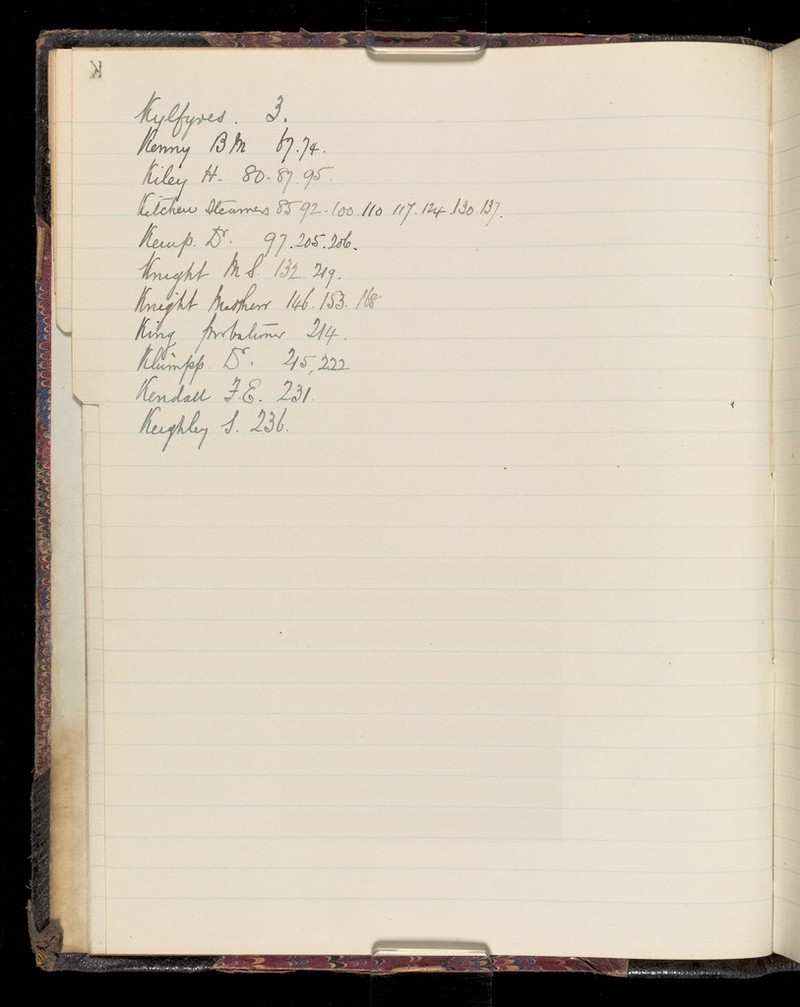 K
Kylfyres. 3.
Kenny B M 67.74.
Kiley H- 80.87.95.
Kitchen Steamers 85 92.100.110 117.124.130.137.
Kemp. Dr. 97.205.206.
Knight M S. 132.219.
Knight Mathew 146.153.168
King probationer 214.
Klümpp. Dr. 215,222
Kendall F.E. 231.
Keighley S. 236.